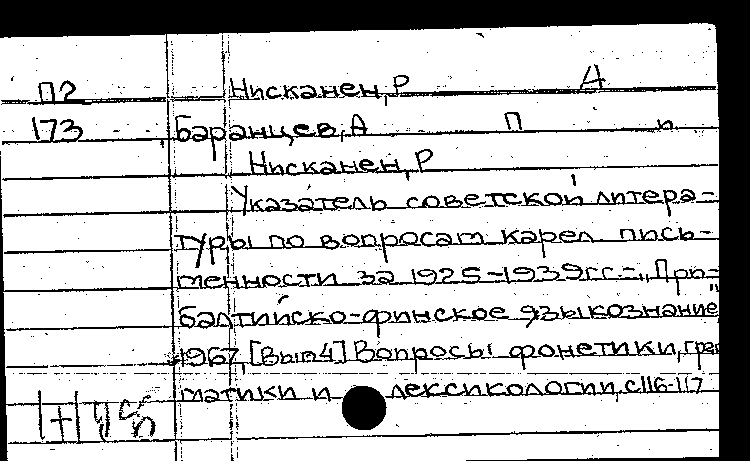 П2 Нисканен, Р Д
173 Баранцев, А П п
Нисканен, Р
Указатель советской литера-
туры по вопросам карел. пись-
менности за 1925-1939 гг.- "При-
балтийско-финское языкознание"
1967, [Вып 4] Вопросы фонетики, грам
матики и лексикологии, с 116-117